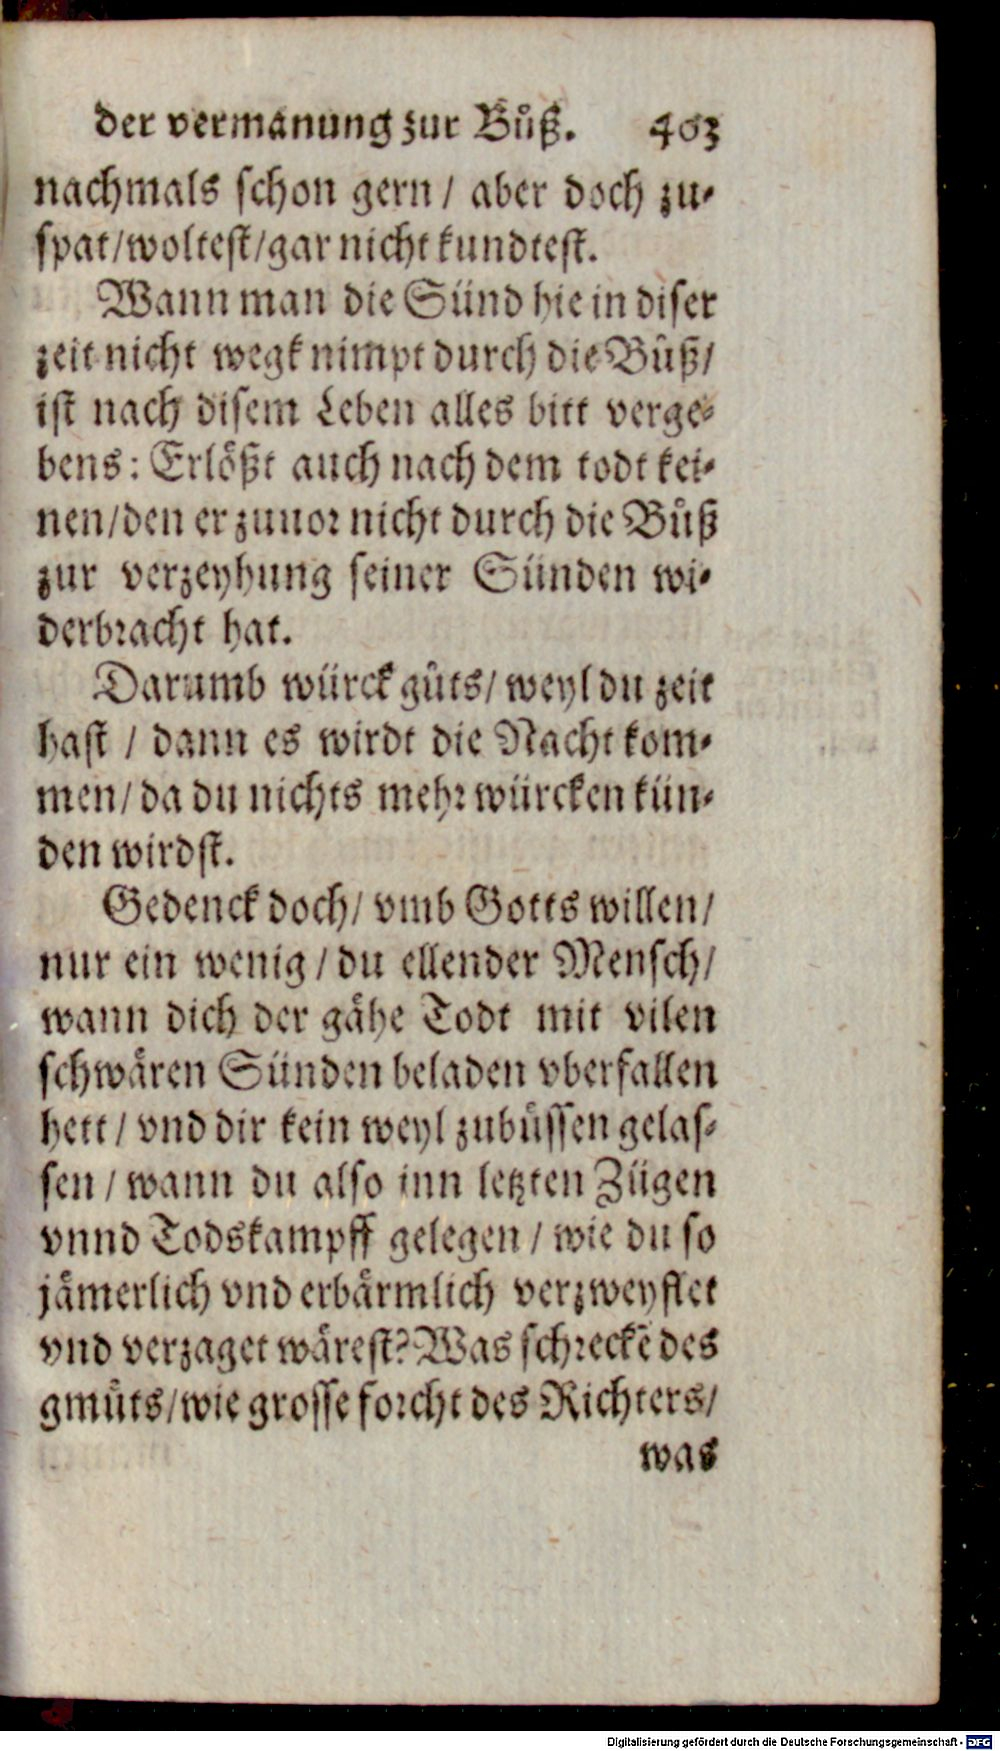 der vermanung zur Bůß. 403
nachmals schon gern / aber doch zu-
spat / woltest / gar nicht kundtest.
Wann man die Sünd hie in diser
zeit nicht wegk nimpt durch die Bůß /
ist nach disem Leben alles bitt verge-
bens: Erlößt auch nach dem todt kei-
nen / den er zuuor nicht durch die Bůß
zur verzeyhung seiner Sünden wi-
derbracht hat.
Darumb würck gůts / weyl du zeit
hast / dann es wirdt die Nacht kom-
men / da du nichts mehr würcken kün-
den wirdst.
Gedenck doch / vmb Gotts willen /
nur ein wenig / du ellender Mensch /
wann dich der gähe Todt mit vilen
schwären Sünden beladen vberfallen
hett / vnd dir kein weyl zubůssen gelas-
sen / wann du also inn letzten Zügen
vnnd Todskampff gelegen / wie du so
jämerlich vnd erbärmlich verzweyflet
vnd verzaget wärest? Was schreckē des
gmůts / wie grosse forcht des Richters /
was
Digitalisierung gefördert durch die Deutsche Forschungsgemeinschaft - DFG